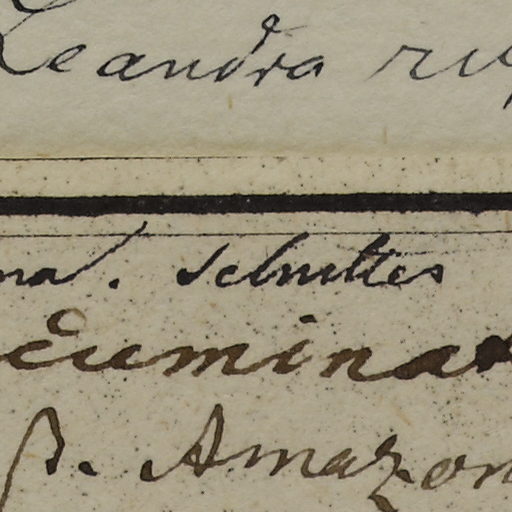 Leandra ru
na. Schultes
cumina
β. Amazon